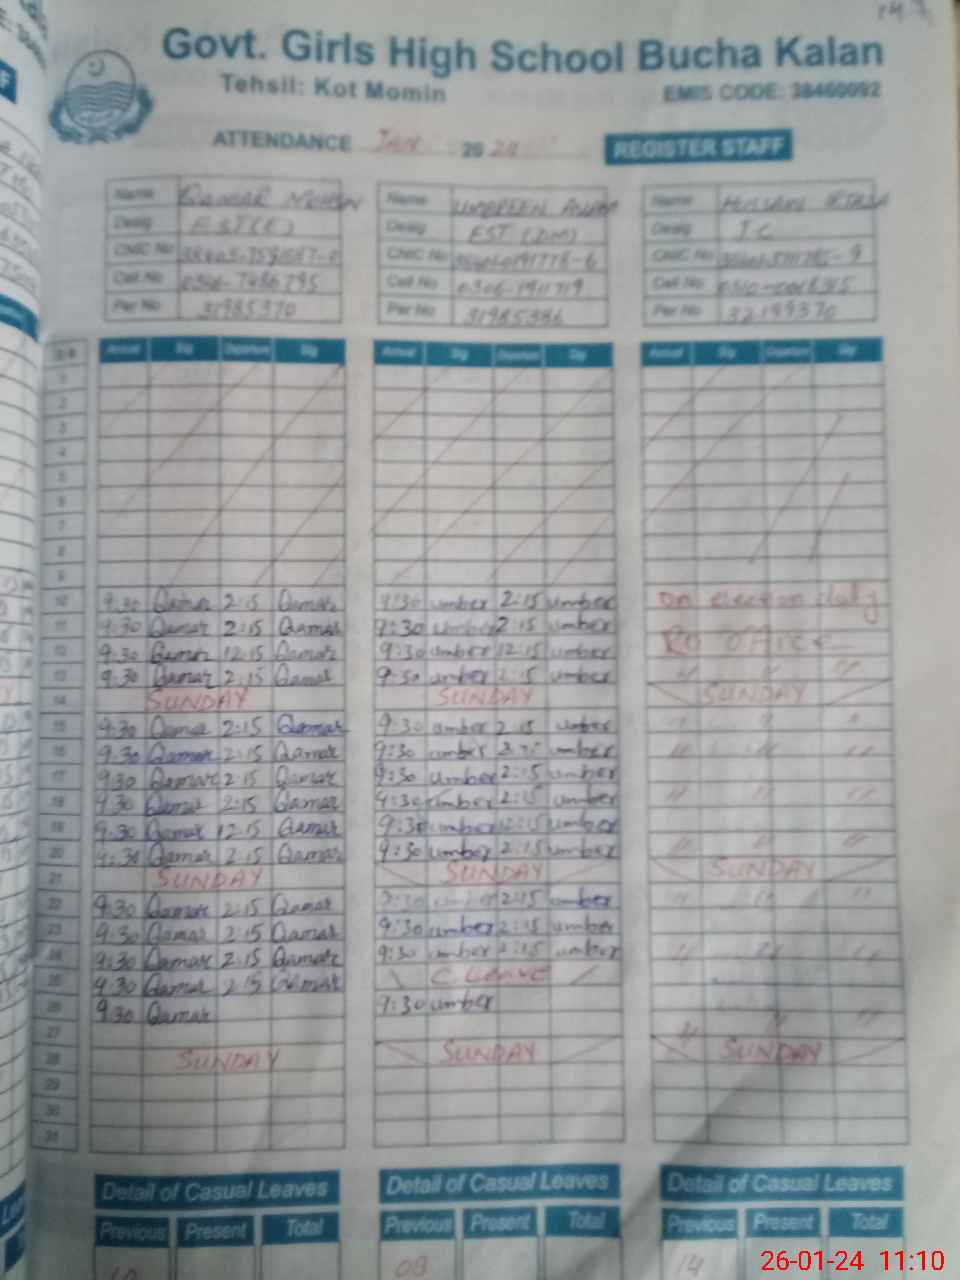 Govt. Girls High School Bucha Kalan
Tehsil: Kot Momin EMIS CODE: 38460092
ATTENDANCE JAN 20 24 REGISTER STAFF
Name Qamar Name Name
Desig EST(E) Desig EST (DM) Desig J.C
CNIC No CNIC No CNIC No
Cell No Cell No 0306-1911719 Cell No
Per No 31985370 Per No 31985386 Per No 32199370
Arrival Sig Departure Sig Arrival Sig Departure Sig Arrival Sig Departure Sig
1
2
3
4
5
6
7
8
9
10 9:30 Qamar 2:15 Qamar 9:30 umber 2:15 umber on election duty
11 9:30 Qamar 2:15 Qamar 9:30 umber 2:15 umber Ro office
12 9:30 Qamar 12:15 Qamar 9:30 umber 12:15 umber
13 9:30 Qamar 2:15 Qamar 9:30 umber 2:15 umber " " "
14 SUNDAY SUNDAY SUNDAY
15 9:30 Qamar 2:15 Qamar 9:30 umber 2:15 umber " " "
16 9:30 Qamar 2:15 Qamar 9:30 umber 2:15 umber " " "
17 9:30 Qamar 2:15 Qamar 9:30 umber 2:15 umber
18 9:30 Qamar 2:15 Qamar 9:30 umber 2:15 umber " " "
19 9:30 Qamar 12:15 Qamar 9:30 umber 12:15 umber
20 9:30 Qamar 2:15 Qamar 9:30 umber 2:15 umber " " "
21 SUNDAY SUNDAY SUNDAY
22 9:30 Qamar 2:15 Qamar 9:30 umber 2:15 umber " " "
23 9:30 Qamar 2:15 Qamar 9:30 umber 2:15 umber
24 9:30 Qamar 2:15 Qamar 9:30 umber 2:15 umber " " "
25 9:30 Qamar 2:15 Qamar C. Leave
26 9:30 Qamar 9:30 umber
27 " " "
28 SUNDAY SUNDAY SUNDAY
29
30
31
Detail of Casual Leaves Detail of Casual Leaves Detail of Casual Leaves
Previous Present Total Previous Present Total Previous Present Total
10 09 14
26-01-24 11:10